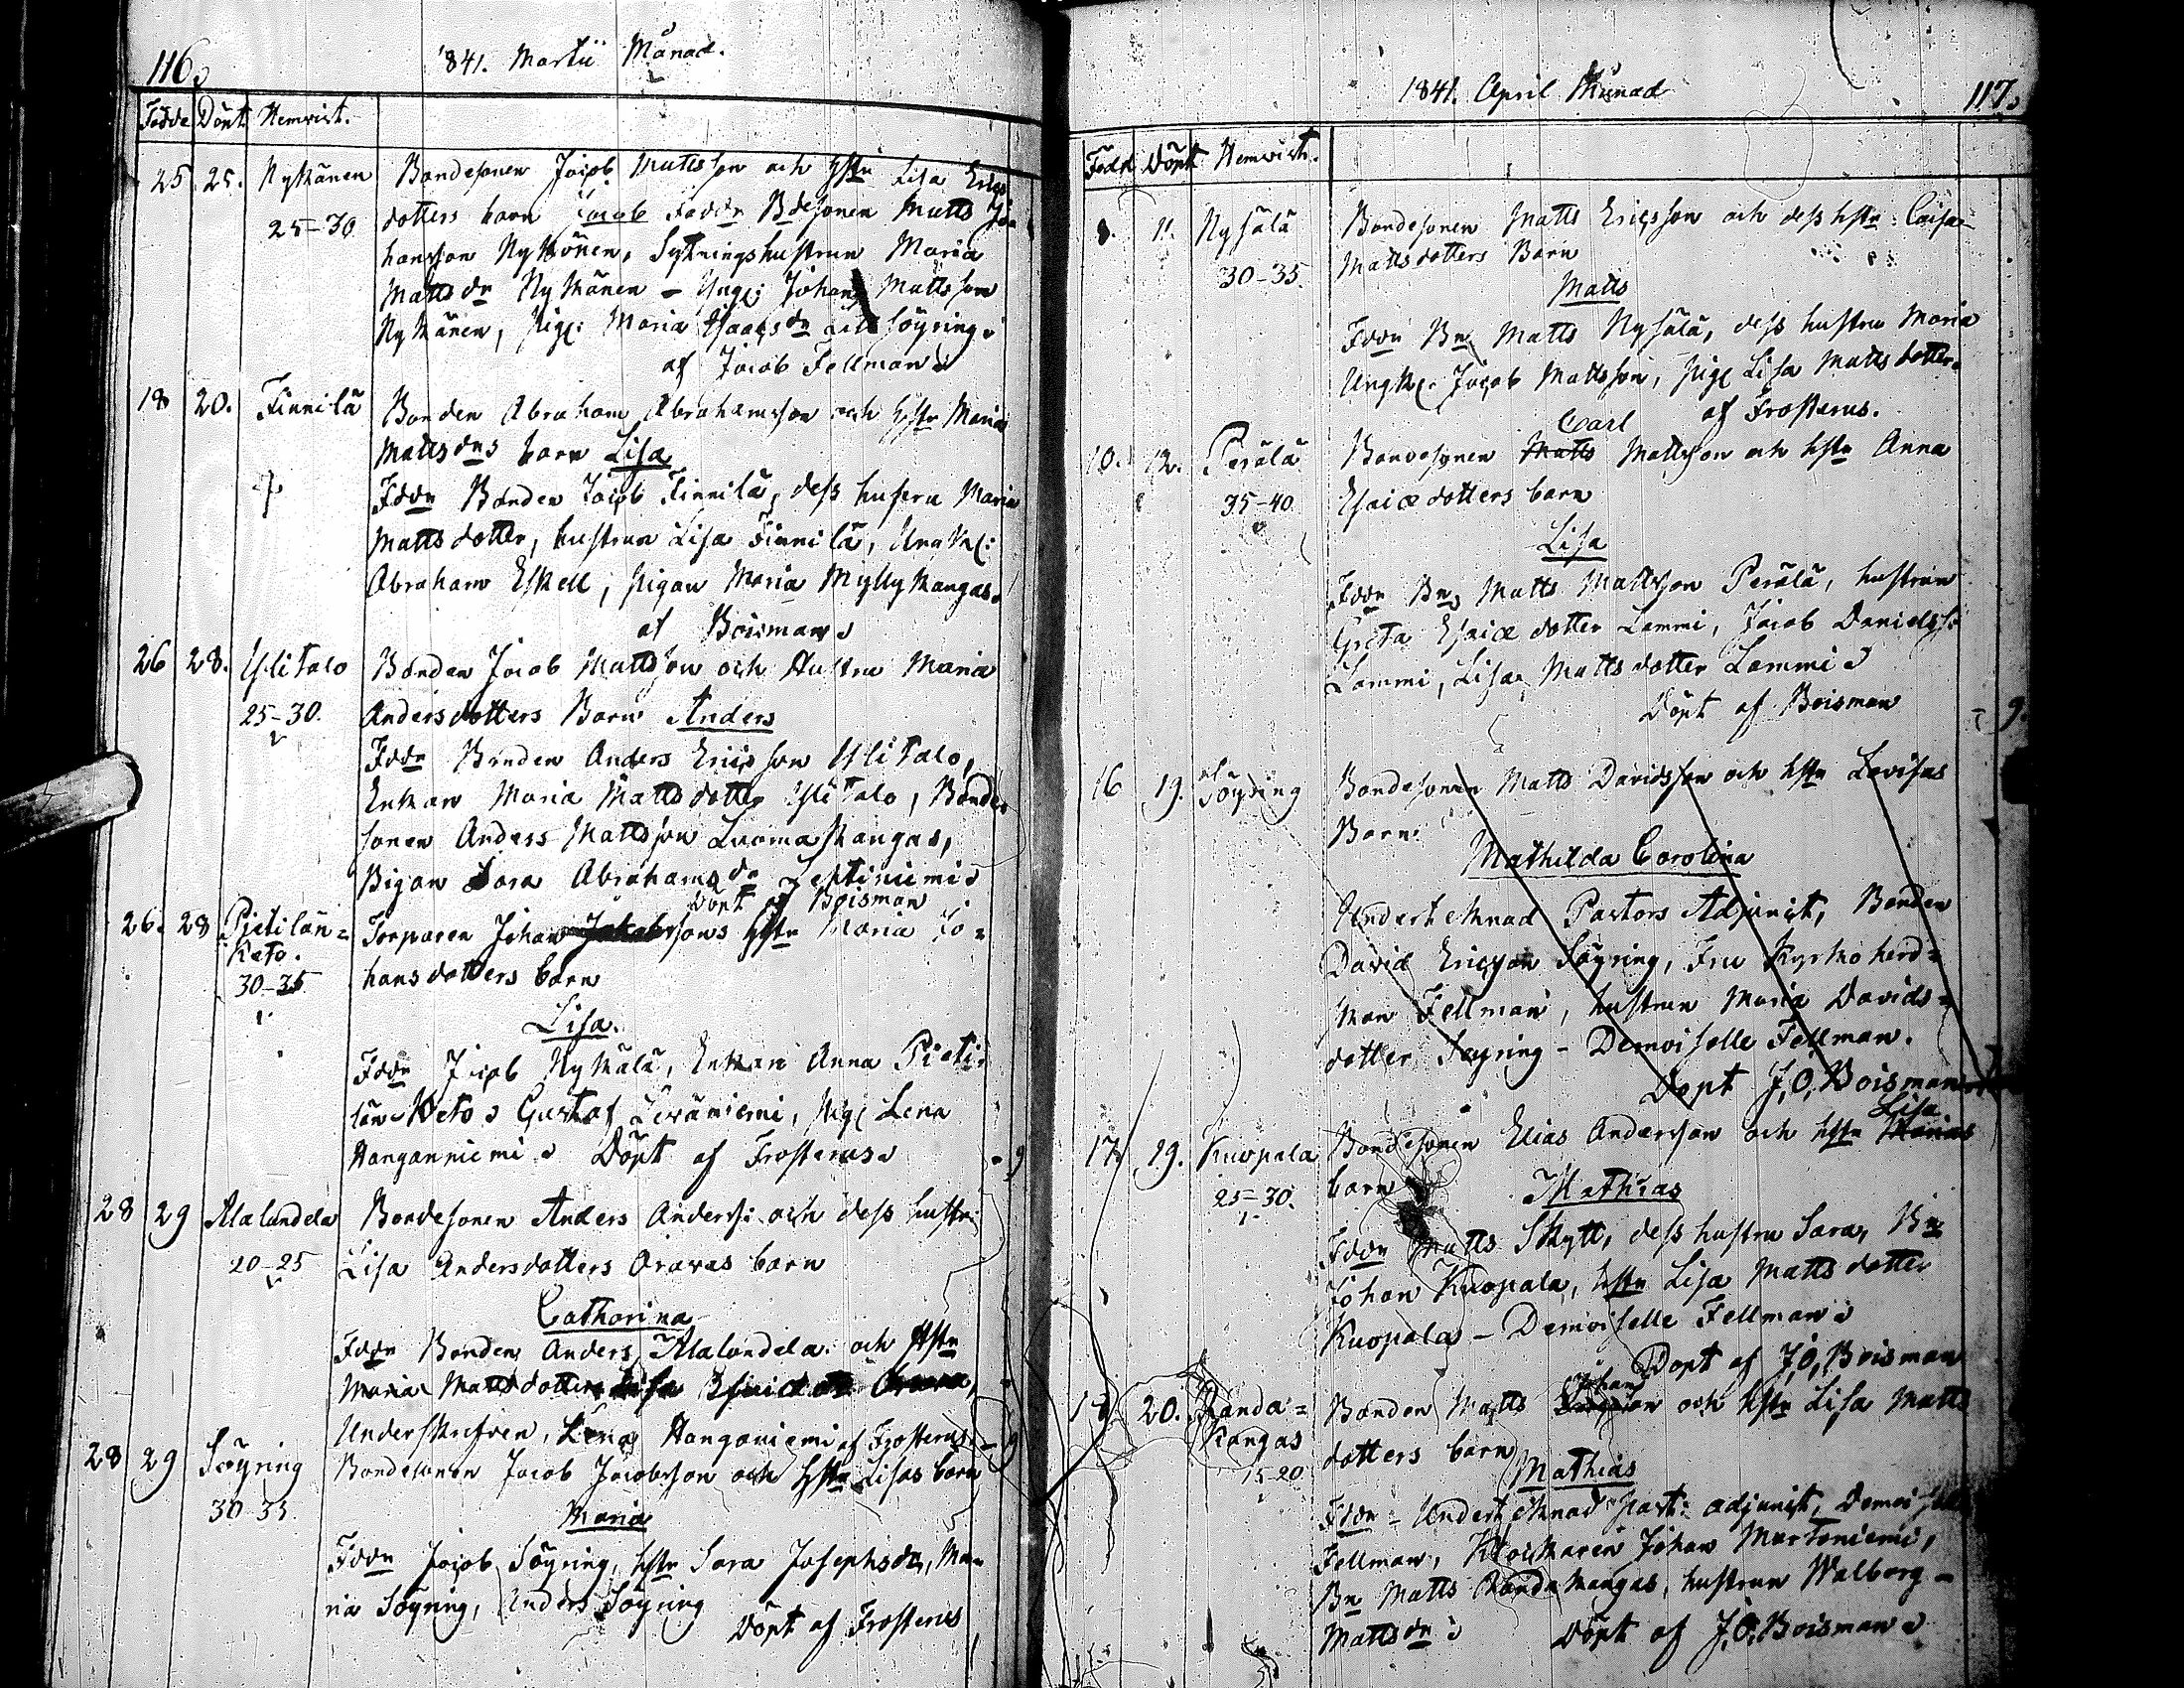 116.
1841. Martii Månad.
Födde Döpt Hemvist.
25 25. Nykänen Bondesonen Jacob Mattsson och hstr Lisa Erics
25-30 dotters barn Jacob Faddr Bdesonen Matts Jo-
hansson Nykänen, Sytningshustrun Maria
Mattsdr Nykänen - Yngl: Johan Mattsson
Nykänen, pig: Maria Isaacsdr Lill Söyring.
af Jacob Fellman
18 20. Finnilä Bonden Abraham Abrahamsson och hstr Maria
Mattsdrs barn Lisa
Fddr Bonden Jacob Finnilä, dess hustru Maria
Matts dotter, hustrun Lisa Finnilä, Ungk:
Abraham Eskell, pigan Maria Myllykangas.
af Boisman
26 28. Ylitalo Bonden Jacob Mattsson och Hustru Maria
25-30. Andersdotters Barn Anders
Fddr Bonden Anders Ericsson Ylitalo,
Enkan Maria Mattsdotter Ylitalo, Bonde-
sonen Anders Mattsson Luomakangas,
Pigan Sara Abrahamsdr
Döpt af Boisman
26. 28 Pietilän= Torparen Johan Jakobssons hstr Maria Jo=
Keto. hansdotters barn
30-35
Lisa.
Fddr Jacob Nykälä, Enkan Anna Pieti-
län-Keto Gustaf pig Lena
Hanganniemi Döpt af Frosterus
28 29 Alalundela Bondesonen Anders Anderss: och dess hustr:
20-25 Lisa Andersdotters Oravas barn
Catharina
Fddr Bonden Anders Alalundela och Hstr
Maria Mattsdotter
Underskrifven, Lena Hanganiemi af Frosterus
28 29 Söyring Bondesonen Jacob Jacobsson och hstr Lisas barn
30 35
Maria
Fddr Jacob Söyring, hstr Sara Josephsdr, Ma-
ria Söyring, Anders Söyring
Döpt af Frosterus
1841. April Månad
117.
Född Döpt Hemvist.
8. 11. Nysälä Bondesonen Matts Ericsson och dess hstr Caisa
30-35. Mattsdotters Barn
Matts
Fddr Bn Matts Nysälä, dess hustru Maria
Ungk: Jacob Mattsson, pig Lisa Mattsdotter.
af Frosterus.
Carl
10. 12. Perälä Bondesonen Matts Mattsson och hstr Anna
35-40. Esaiædotters barn
Lisa
Fddr Bn Matts Mattsson Perälä, hustrun
Greta Esaiæ dotter Lammi, Jacob Danielss:
Lammi, Lisa Mattsdotter Lammi
Döpt af Boisman
9.
16 19. Söyring Bondesonen Matts Davidsson och hstr Lovisas
Barn
Mathilda Carolina
Undertecknad Pastors Adjunct, Bonden
David Ericsson Söyring, Fru Kyrkoherd=
skan Fellman, hustrun Maria Davids=
dotter Söyring - Demoiselle Fellman.
Döpt J. O. Boisman
Lisa
17. 19. Kuopala Bondesonen Elias Andersson och hstr Marias
25-30. barn
Mathias
Fddr Matts Skytt, dess hustru Sara, Bn
Johan Kuopala, hstr Lisa Mattsdotter
Kuopala - Demoiselle Fellman
Döpt af J. O. Boisman
Johans
20. Randa= Bonden Matts och hstr Lisa Matts
Kangas dotters barn
15-20
Mathias
Fddr - Undertecknad past: adjunct, Demoiselle
Fellman, Klockaren Johan Martoniemi,
Bn Matts Randakangas, hustrun Walborg
Mattsdr Döpt af J. O. Boisman